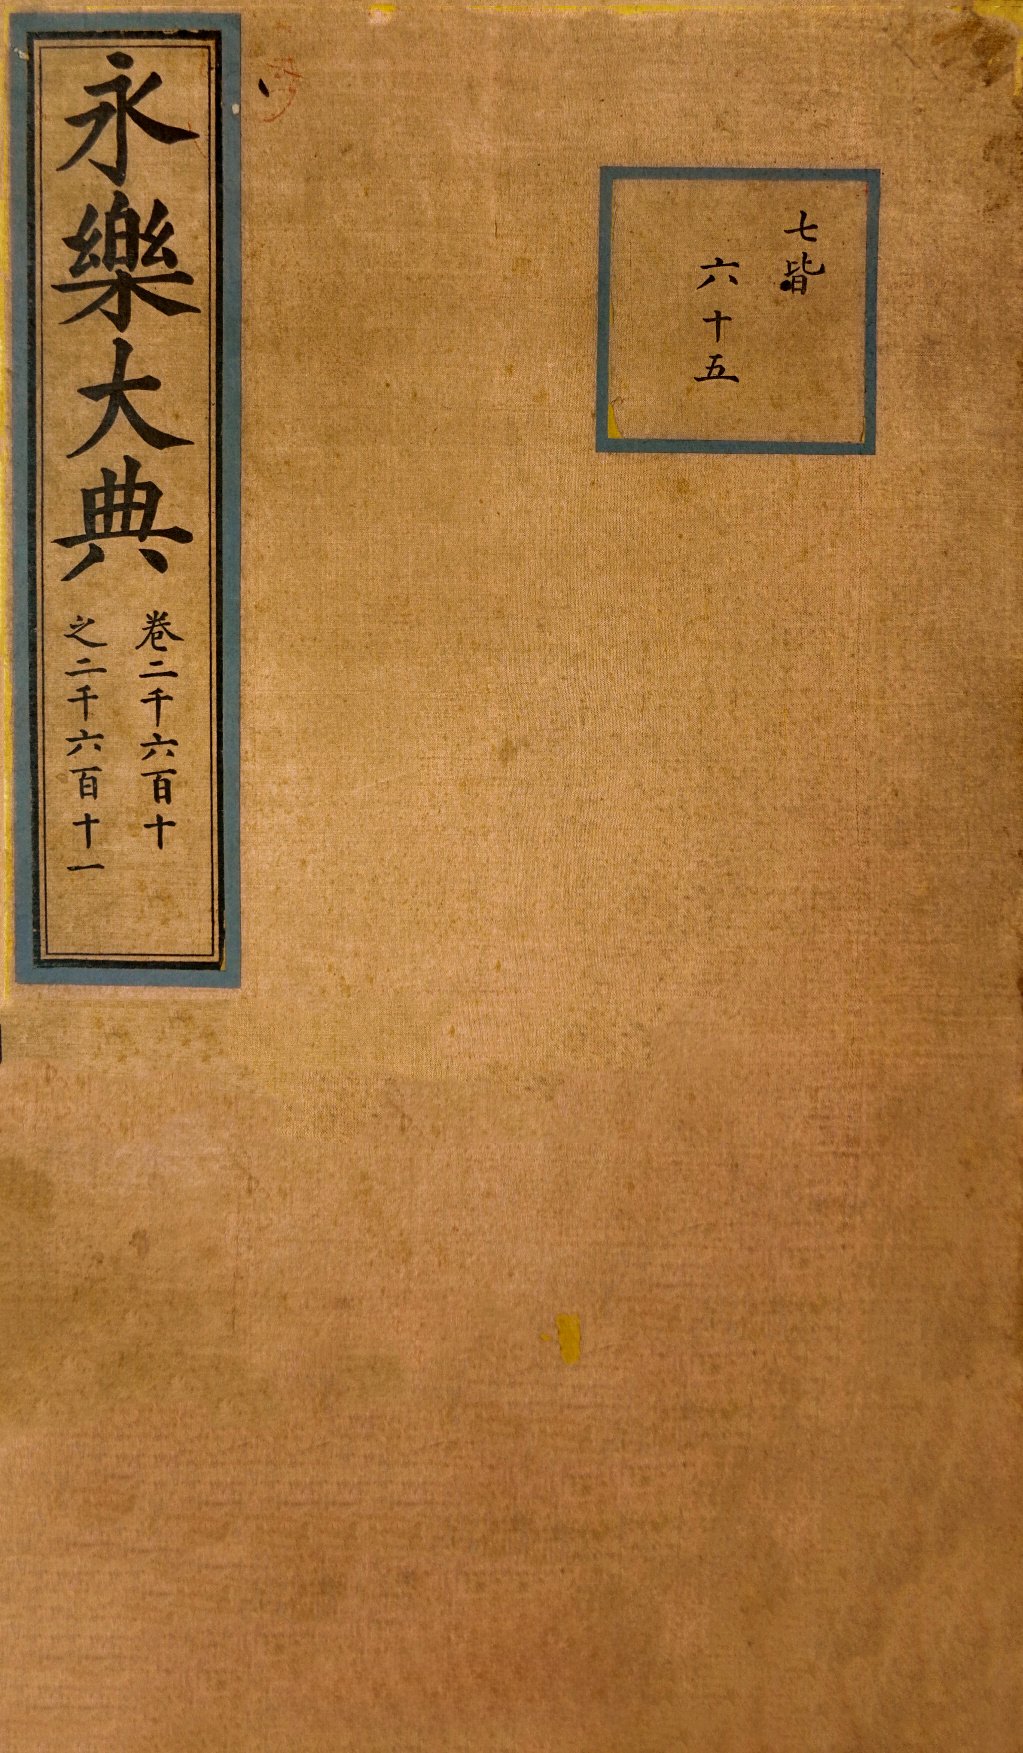 七皆
六十五
永樂大典
卷二千六百十
之二千六百十一